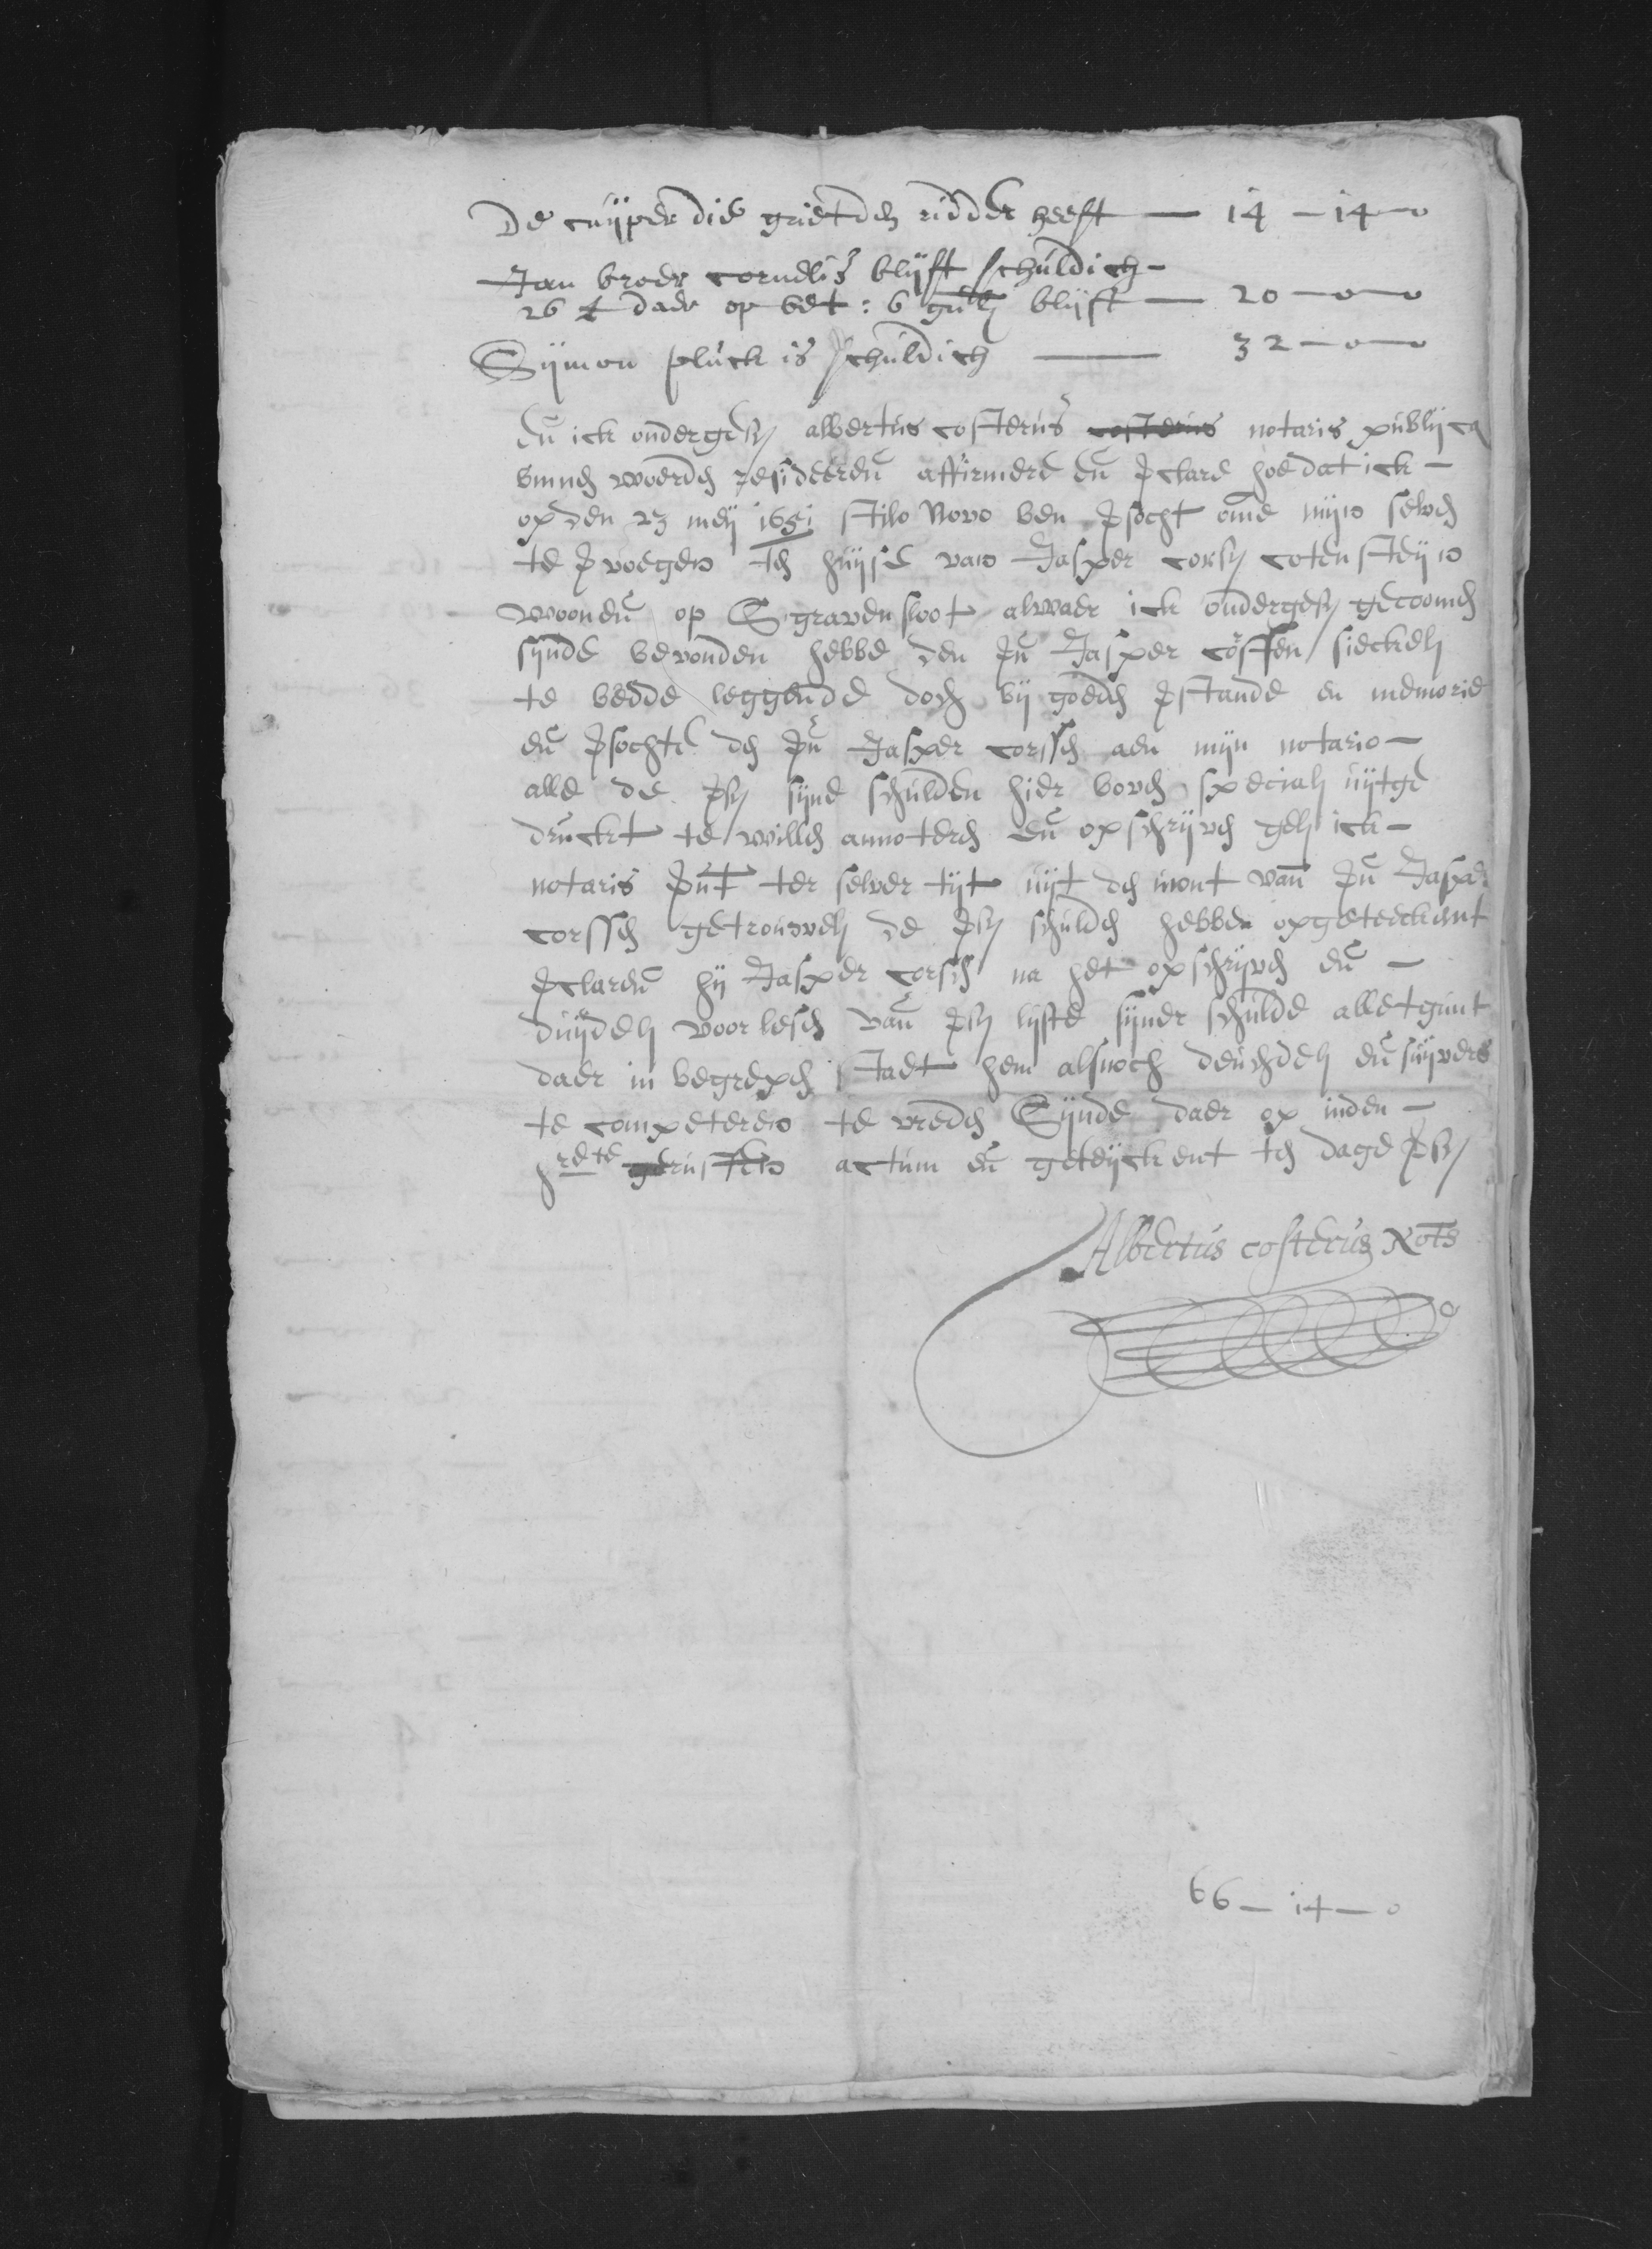 De cuijper die grietden ridder heeft — 14 — 14 — 0
Jan broer cornelis blijft schuldich —
26 £ daer op bet: 6 guls blijft — 20 — 0 — 0
Sijmon pluck is schuldich — 32 — 0 — 0
en ick ondergesz albertus costerus costerus notaris publijcq
binnen woerden resideeren affirmere en vclare hoe dat ick —
op den 23 meij 1651 stilo Novo ben vsocht omme mijn selven
te vvoegen ten huijse van Jasper corsz cotensteijn
woonen op S gravensloot alwaer ick ondergesz gecoomen
sijnde bevonden hebbe den vn Jasper corssen sieckel
te bedde leggende doch bij goeden vstande en memorie
en vsochte den vn Jasper corssen aen mijn notario —
alle de vsz sijne schulden hier boven specialh uijtge
druckt te willen annoteren en opschrijven gelh ick —
notaris vnt ter selver tijt uijt den mont van vn Jasper
corssen getrouwelh de vsz schulden hebben opgeteeckent
vclaren hij Jasper corsen na het opschrijven en —
duijdelh voorlesen van vsz lijste sijner schulde alletgunt
daer in begrepen staet hem alsnoch deuchdelh en suijvers
te competeren te vreden Sijnde daer op inden —
actum en geteijckent ten dage vsz
Albertus costerus Nots
66 — 14 — 0